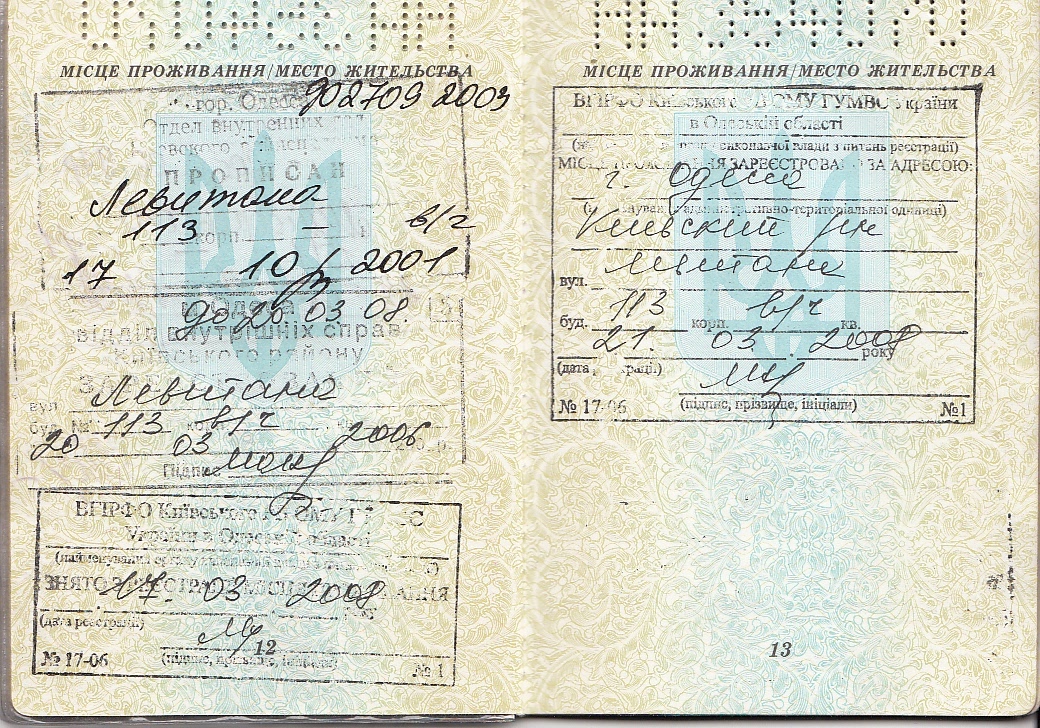 МІСЦЕ ПРОЖИВАННЯ/МЕСТО ЖИТЕЛЬСТВА
гор. Одесс
до 2709 2003
Отдел внутренних дел
ПРОПИСАН
Левитана
113 корп. – в/ч
17 10 2001
м. Одеса
до 20.03.08.
відділ внутрішніх справ
Київського району
Левитана
вул.
буд. № 113 корп. в/ч
20 03 2006 р.
Підпис
ВГІРФО Київського
України в Одеській області
ЗНЯТО З РЕЄСТРАЦІЇ МІСЦЯ ПРОЖИВАННЯ
17. 03 2008
(дата реєстрації)
12
№ 17-06 (підпис, прізвище, ініціали) № 1
МІСЦЕ ПРОЖИВАННЯ/МЕСТО ЖИТЕЛЬСТВА
ВГІРФО Київського ГУМВС України
в Одеській області
виконавчої влади з питань реєстрації)
МІСЦЕ ПРОЖИВАННЯ ЗАРЕЄСТРОВАНО ЗА АДРЕСОЮ:
г. Одесса
адміністративно-територіальної одиниці)
Киевский
вул. Левитана
буд. 113 корп. в/ч кв.
21. 03. 2008 року
(дата реєстрації)
№ 17-06 (підпис, прізвище, ініціали) №1
13